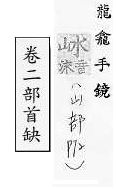 龍龕手鏡
音
(山部 )
卷二部首缺